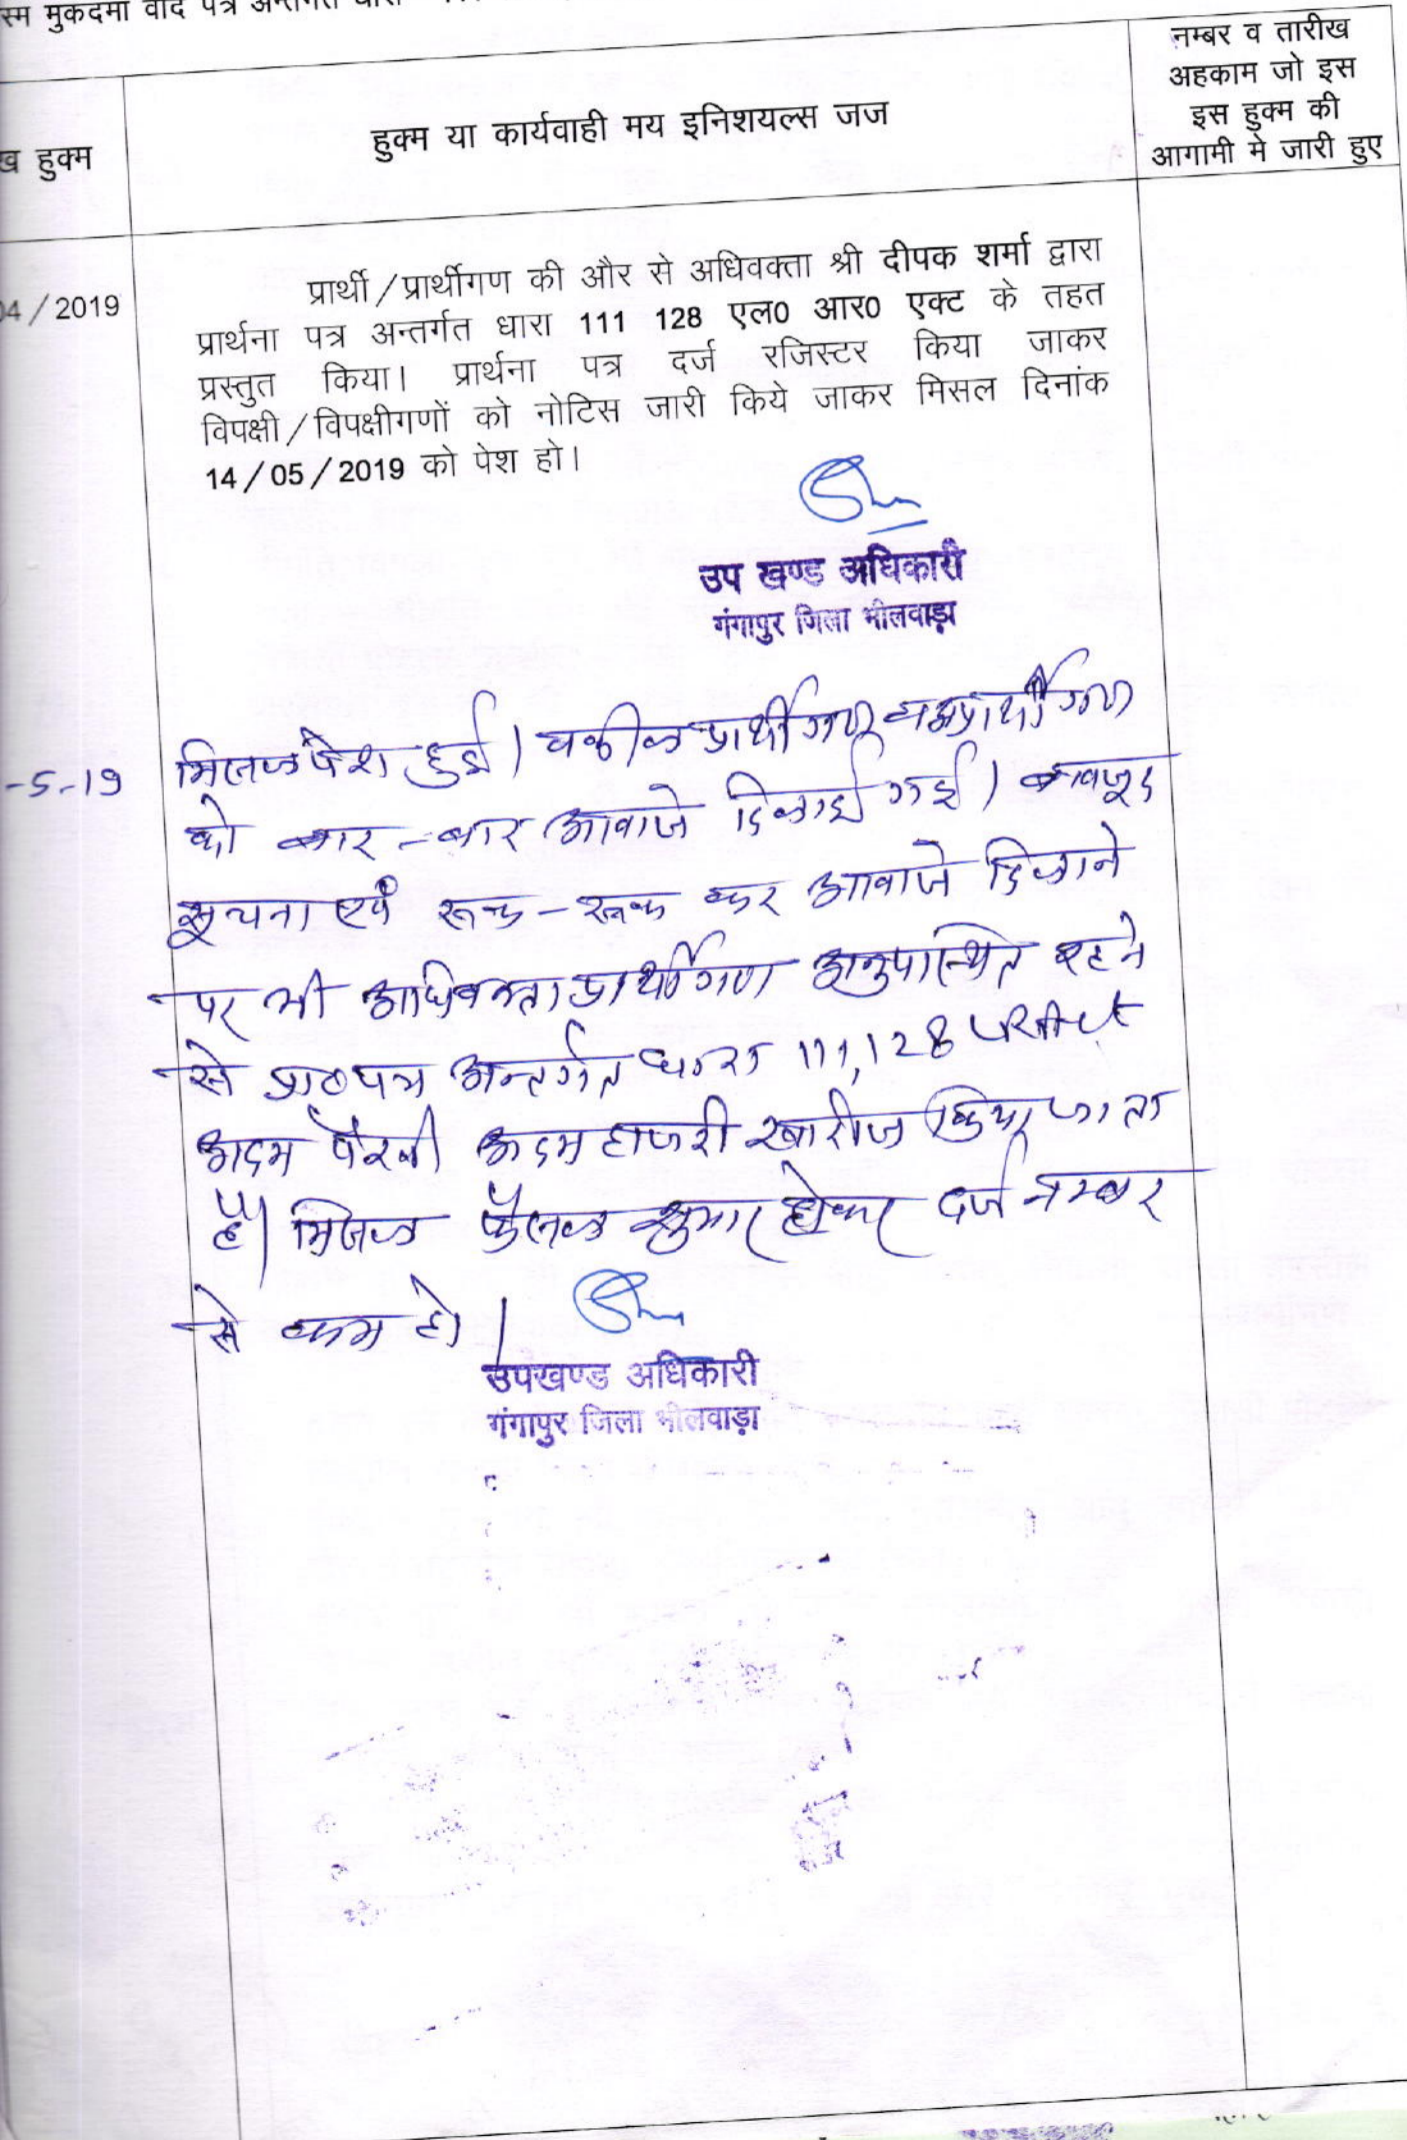 मुकदमा वाद पत्र अन्तर्गत
हुक्म
हुक्म या कार्यवाही मय इनिशयल्स जज
नम्बर व तारीख
अहकाम जो इस
इस हुक्म की
आगामी मे जारी हुए
04/2019
प्रार्थी/प्रार्थीगण की और से अधिवक्ता श्री दीपक शर्मा द्वारा
प्रार्थना पत्र अन्तर्गत धारा 111 128 एल0 आर0 एक्ट के तहत
प्रस्तुत किया। प्रार्थना पत्र दर्ज रजिस्टर किया जाकर
विपक्षी/विपक्षीगणों को नोटिस जारी किये जाकर मिसल दिनांक
14/05/2019 को पेश हो।
उप खण्ड अधिकारी
गंगापुर जिला भीलवाड़ा
-5-19
मिसल पेश हुई। वकील प्रार्थीगण व अप्रार्थीगण
को बार-बार आवाजे दिलाई गई। बावजूद
सूचना एवं रूक-रूक कर आवाजे दिलाने
पर भी अधिवक्ता प्रार्थीगण अनुपस्थित रहने
से प्रा०पत्र अन्तर्गत धारा 111,128
अदम पैरवी अदम हाजरी खारीज किया जाता
है। मिसल फैसल शुमार होकर दर्ज नम्बर
से कम हो।
उपखण्ड अधिकारी
गंगापुर जिला भीलवाड़ा